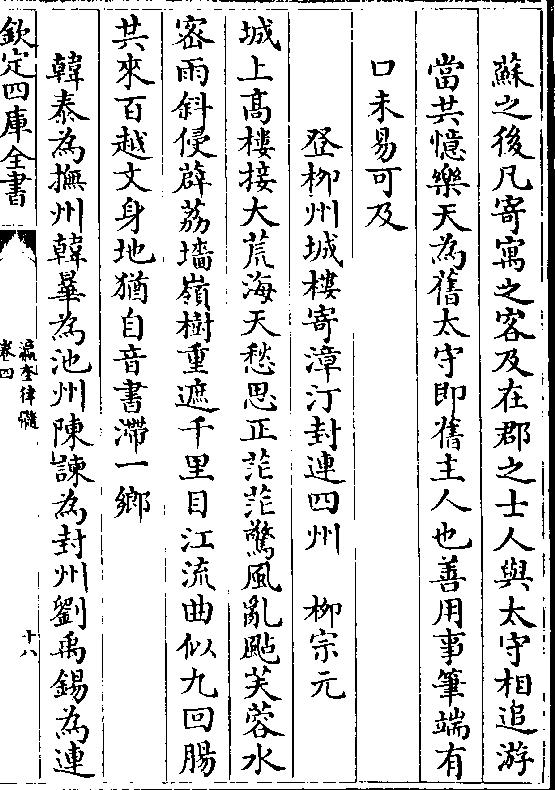 蘇之後凡寄寓之客及在郡之士人與太守相追游
當共憶樂天為舊太守即舊主人也善用事筆端有
口未易可及
登柳州城樓寄漳汀封連四州　柳宗元
城上髙樓接大荒海天愁思正茫茫驚風亂颭芙蓉水
宻雨斜侵薜荔墻嶺樹重遮千里目江流曲似九回腸
共來百越文身地猶自音書滯一鄉
韓泰為撫州韓曅為池州陳諫為封州劉禹錫為連
欽定四庫全書
瀛奎律髓
卷四
十八